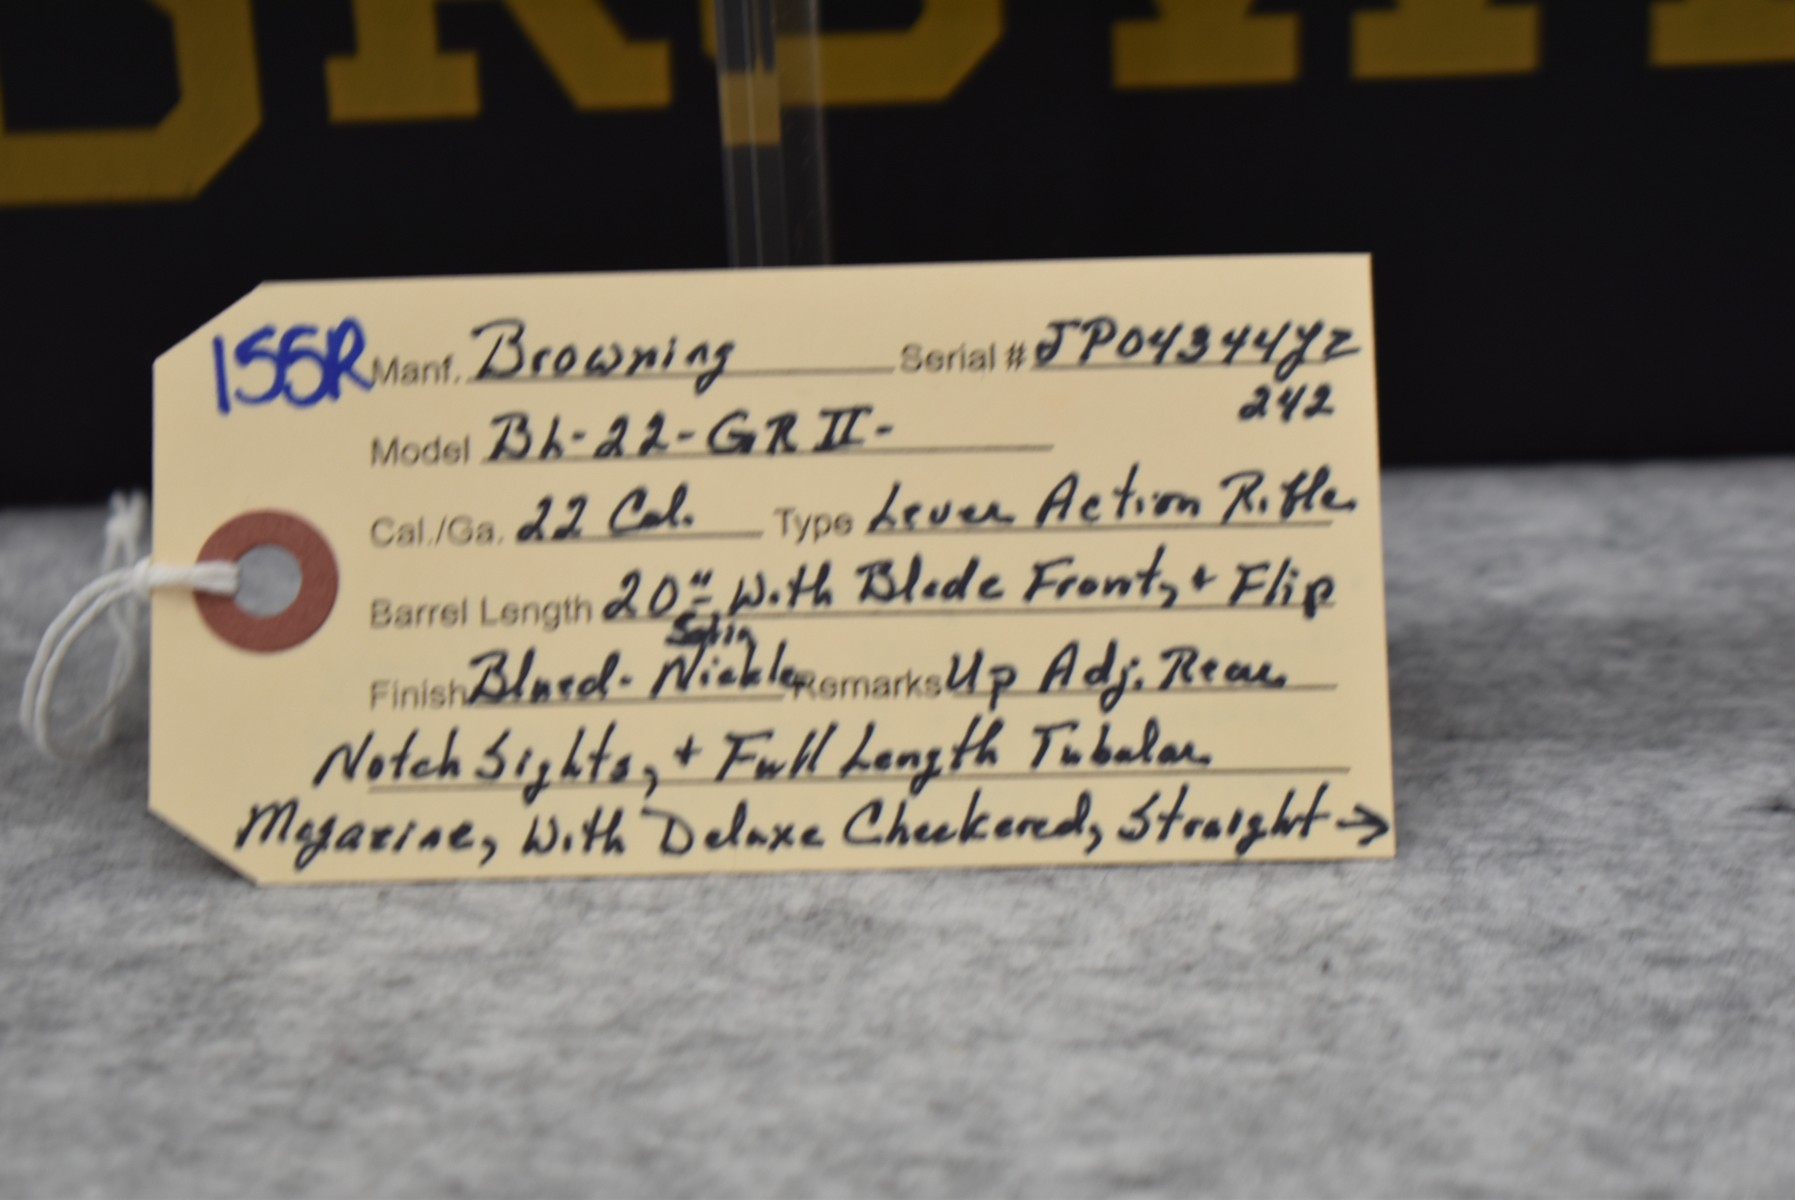 155R Manf. Browning Serial # JP04344YZ
242
Model BL-22-GR II-
Cal./Ga. 22 Cal. Type Lever Action Rifle
Barrel Length 20" With Blade Front, + Flip
Satin
Finish Blued- Nickle Remarks Up Adj. Rear
Notch Sights, + Full Length Tubular
Magazine, With Deluxe Checkered, Straight →